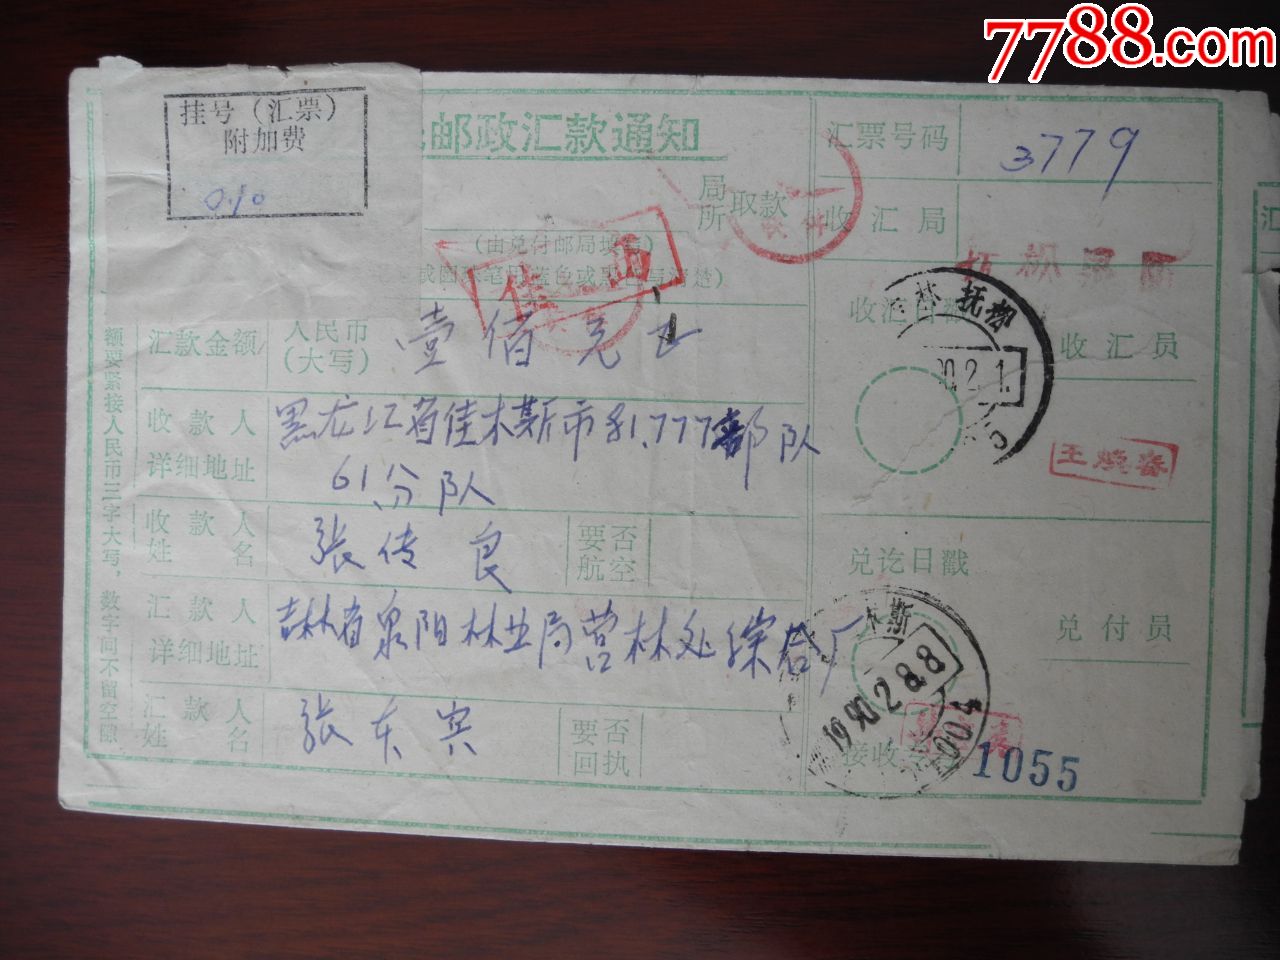 7788.com
挂号（汇票）
附加费
0.10
邮政汇款通知
局
所
取款
（由兑付邮局填写）
汇票号码
3779
收汇局
抚松泉阳
佳
收汇日戳
林 抚松
90.2.1.
收汇员
王晓春
汇款金额
人民币
（大写）
壹佰元正
收款人
详细地址
黑龙江省佳木斯市81.777部队
61分队
收款人
姓名
张传良
要否
航空
汇款人
详细地址
吉林省泉阳林业局营林处综合厂
汇款人
姓名
张东宾
要否
回执
额要紧接人民币三字大写，数字间不留空隙
兑讫日戳
木斯
1990.2.8.8
兑付员
接收
1055
汇